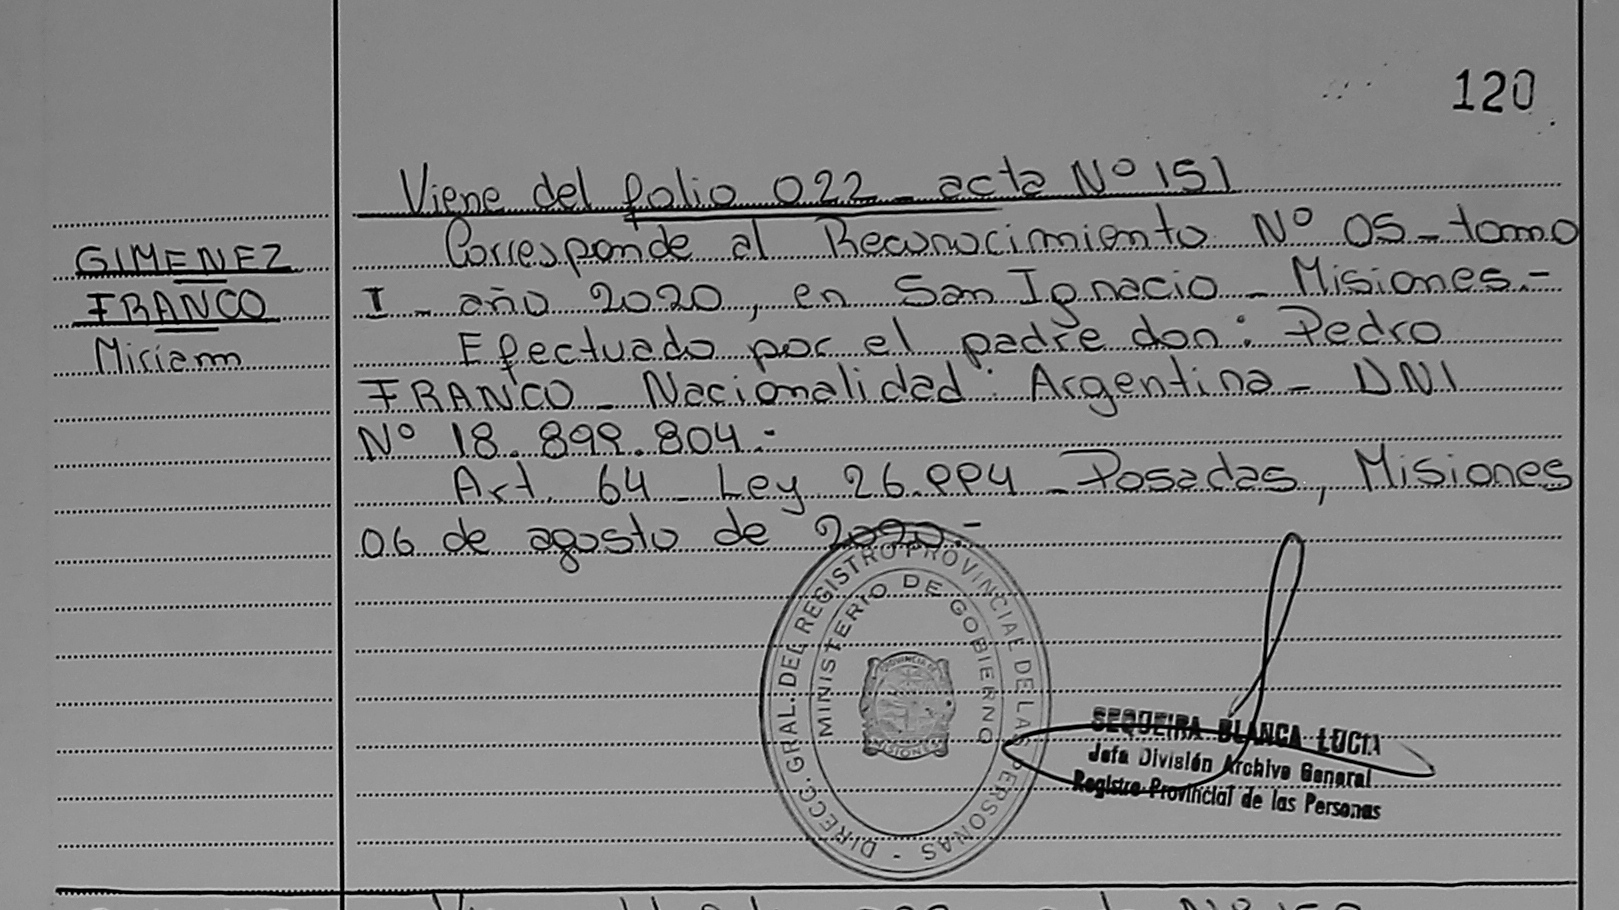 120
Viene del folio 022 _ acta Nº 151
GIMENEZ
FRANCO
Miriam
Corresponde al Reconocimiento Nº 05 _ tomo
I _ año 2020, en San Ignacio _ Misiones.-
Efectuado por el padre don: Pedro
FRANCO _ Nacionalidad: Argentina _ DNI
Nº 18.899.804.-
Art. 64 _ Ley 26.994 _ Posadas, Misiones
06 de agosto de 2020.-
DIRECC. GRAL. DEL REGISTRO PROVINCIAL DE LAS PERSONAS -
MINISTERIO DE GOBIERNO
PROVINCIA DE
MISIONES
SEQUEIRA BLANCA LUCIA
Jefa División Archivo General
Registro Provincial de las Personas